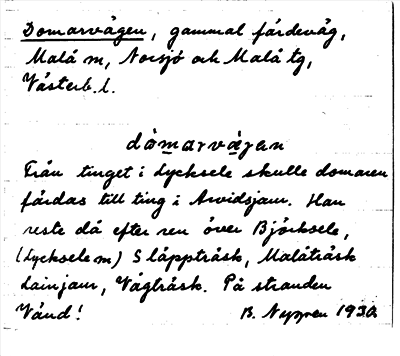 Domarvägen, gammal färdeväg,
Malå m, Norsjö och Malå tg,
Västerb. l.
dòmarvä̀gan
Från tinget i Lycksele skulle domaren
färdas till ting i Arvidsjaur. Han
reste då efter ren över Björksele,
(Lycksele m) Släppträsk, Malåträsk
Lainjaur, Vägträsk. På stranden
Vänd!
B. Nygren 1930.